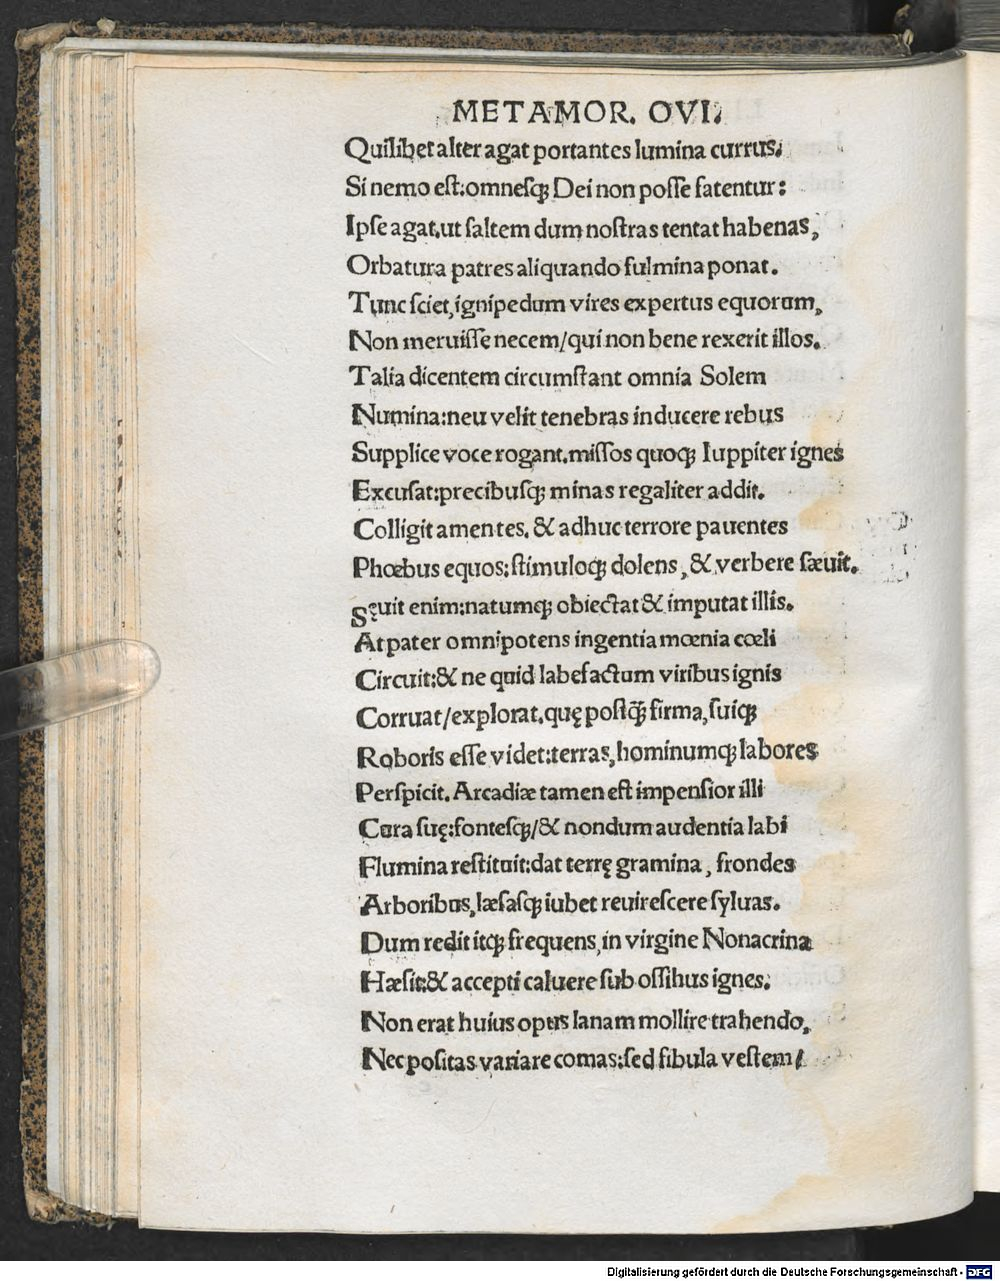 METAMOR. OVI.
Quilibet alter agat portantes lumina currus.
Si nemo eſt:omneſqꝫ Dei non poſſe fatentur:
Ipſe agat.ut ſaltem dum noſtras tentat habenas,
Orbatura patres aliquando fulmina ponat.
Tunc ſciet,ignipedum vires expertus equorum,
Non meruiſſe necem/qui non bene rexerit illos.
Talia dicentem circumſtant omnia Solem
Numina:neu velit tenebras inducere rebus
Supplice voce rogant.miſſos quoqꝫ Iuppiter ignes
Excuſat:precibuſqꝫ minas regaliter addit.
Colligit amentes. & adhuc terrore pauentes
Phœbus equos:ſtimuloqꝫ dolens, & verbere ſæuit.
Sęuit enim:natumqꝫ obiectat & imputat illis.
At pater omnipotens ingentia mœnia cœli
Circuit:& ne quid labefactum viribus ignis
Corruat/explorat.quę poſtꝗ̃ firma,ſuiqꝫ
Roboris eſſe videt:terras,hominumqꝫ labores
Perſpicit. Arcadiæ tamen eſt impenſior illi
Cura ſuę:fonteſqꝫ/& nondum audentia labi
Flumina reſtituit:dat terrę gramina, frondes
Arboribus,læſaſqꝫ iubet reuireſcere ſyluas.
Dum redit itqꝫ frequens,in virgine Nonacrina
Hæſit:& accepti caluere ſub oſſibus ignes.
Non erat huius opus lanam mollire trahendo,
Nec poſitas variare comas:ſed fibula veſtem/
Digitalisierung gefördert durch die Deutsche Forschungsgemeinschaft - DFG